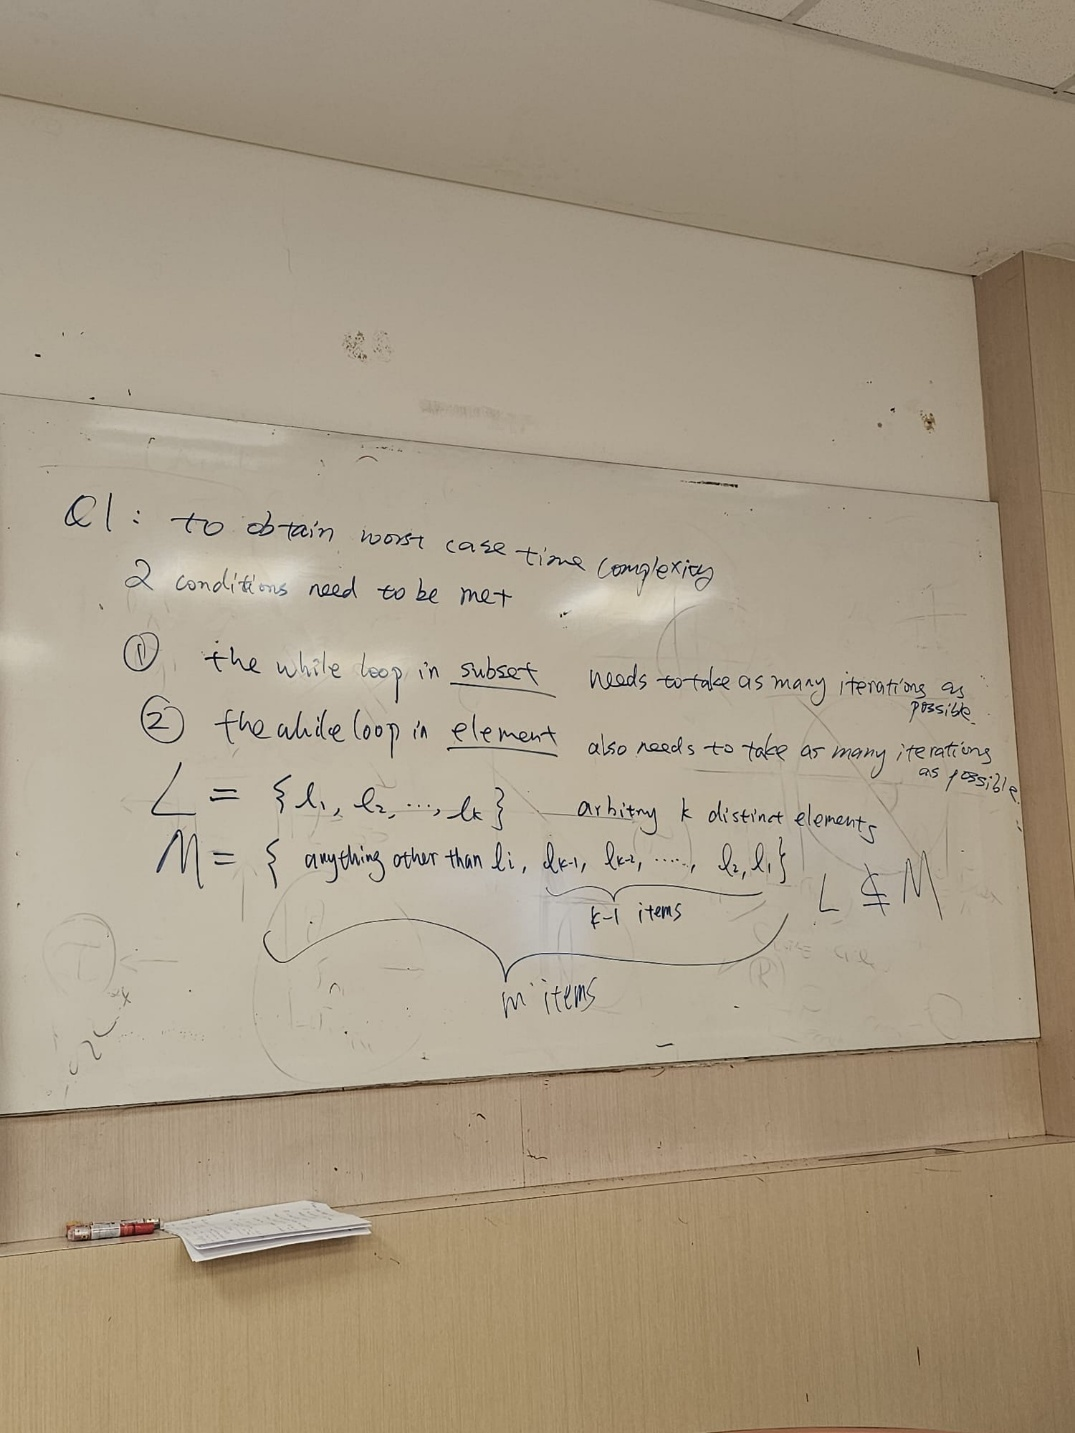 Q1: to obtain worst case time complexity
2 conditions need to be met
① the while loop in subset needs to take as many iterations as possible.
② the while loop in element also needs to take as many iterations as possible.
L = {l₁, l₂, ..., lₖ} arbitry k distinct elements
M = { anything other than lᵢ, lₖ₋₁, lₖ₋₂, ....., l₂, l₁} L ⊈ M
k-1 items
m items